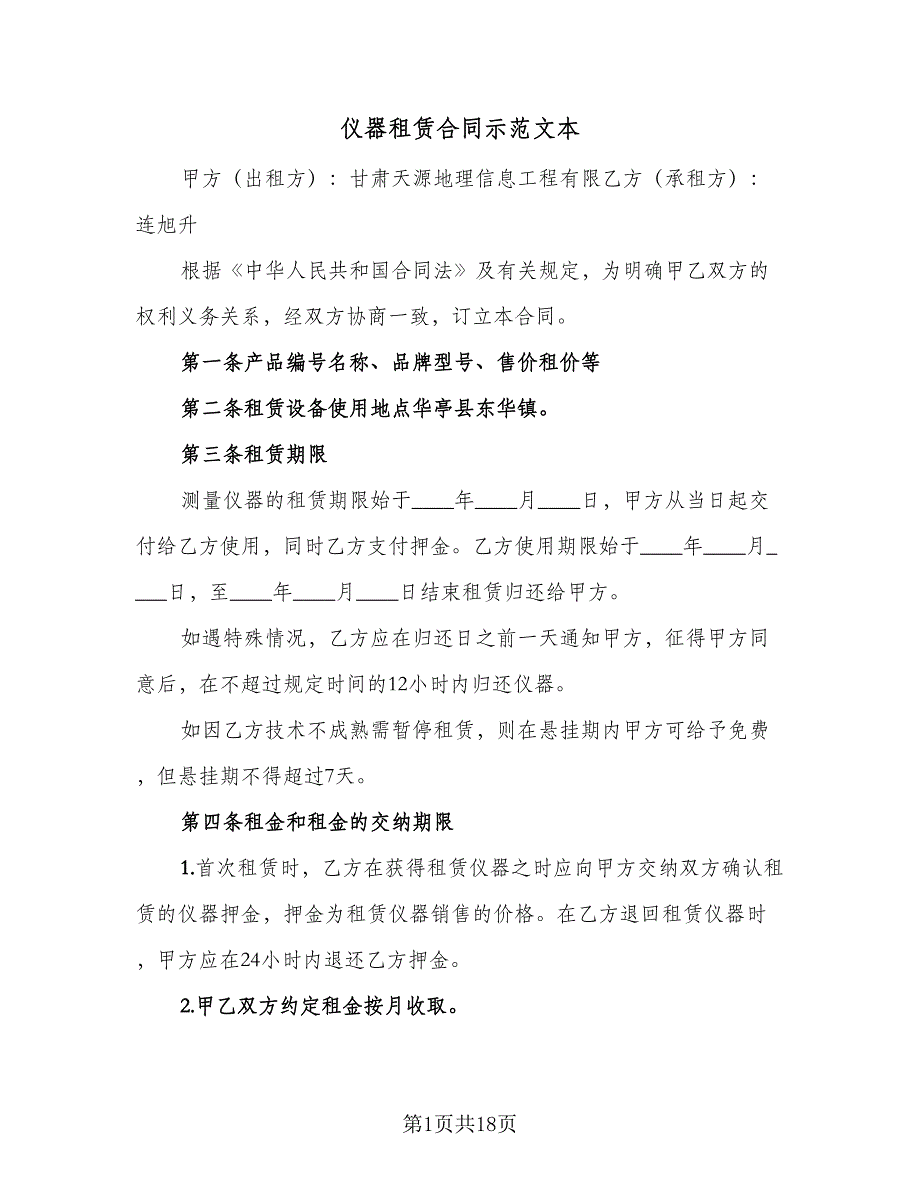 仪器租赁合同示范文本
甲方（出租方）：甘肃天源地理信息工程有限乙方（承租方）：
连旭升
根据《中华人民共和国合同法》及有关规定，为明确甲乙双方的
权利义务关系，经双方协商一致，订立本合同。
第一条产品编号名称、品牌型号、售价租价等
第二条租赁设备使用地点华亭县东华镇。
第三条租赁期限
测量仪器的租赁期限始于____年____月____日，甲方从当日起交
付给乙方使用，同时乙方支付押金。乙方使用期限始于____年____月_
___日，至____年____月____日结束租赁归还给甲方。
如遇特殊情况，乙方应在归还日之前一天通知甲方，征得甲方同
意后，在不超过规定时间的12小时内归还仪器。
如因乙方技术不成熟需暂停租赁，则在悬挂期内甲方可给予免费
，但悬挂期不得超过7天。
第四条租金和租金的交纳期限
1.首次租赁时，乙方在获得租赁仪器之时应向甲方交纳双方确认租
赁的仪器押金，押金为租赁仪器销售的价格。在乙方退回租赁仪器时
，甲方应在24小时内退还乙方押金。
2.甲乙双方约定租金按月收取。
第1页共18页